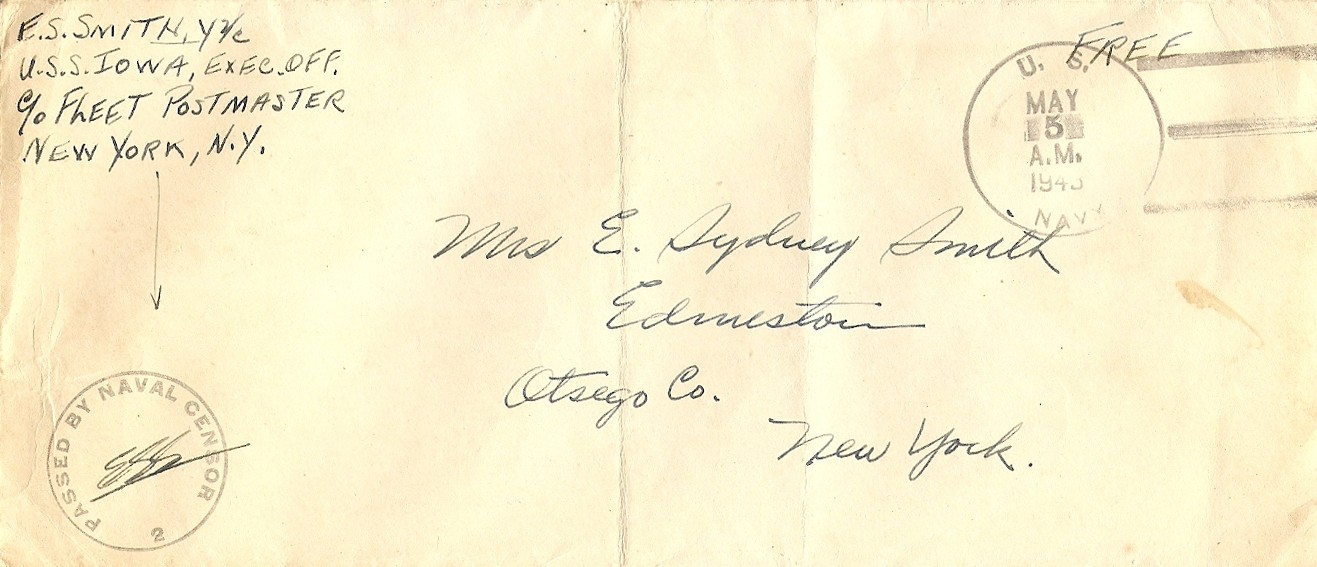 E.S. SMITH, Y2/c
U.S.S. IOWA, EXEC. OFF.
c/o FLEET POSTMASTER
NEW YORK, N.Y.
FREE
U. S.
MAY
5
A.M.
1943
NAVY
Mrs E. Sydney Smith
Edmeston
Otsego Co.
New York.
PASSED BY NAVAL CENSOR
2